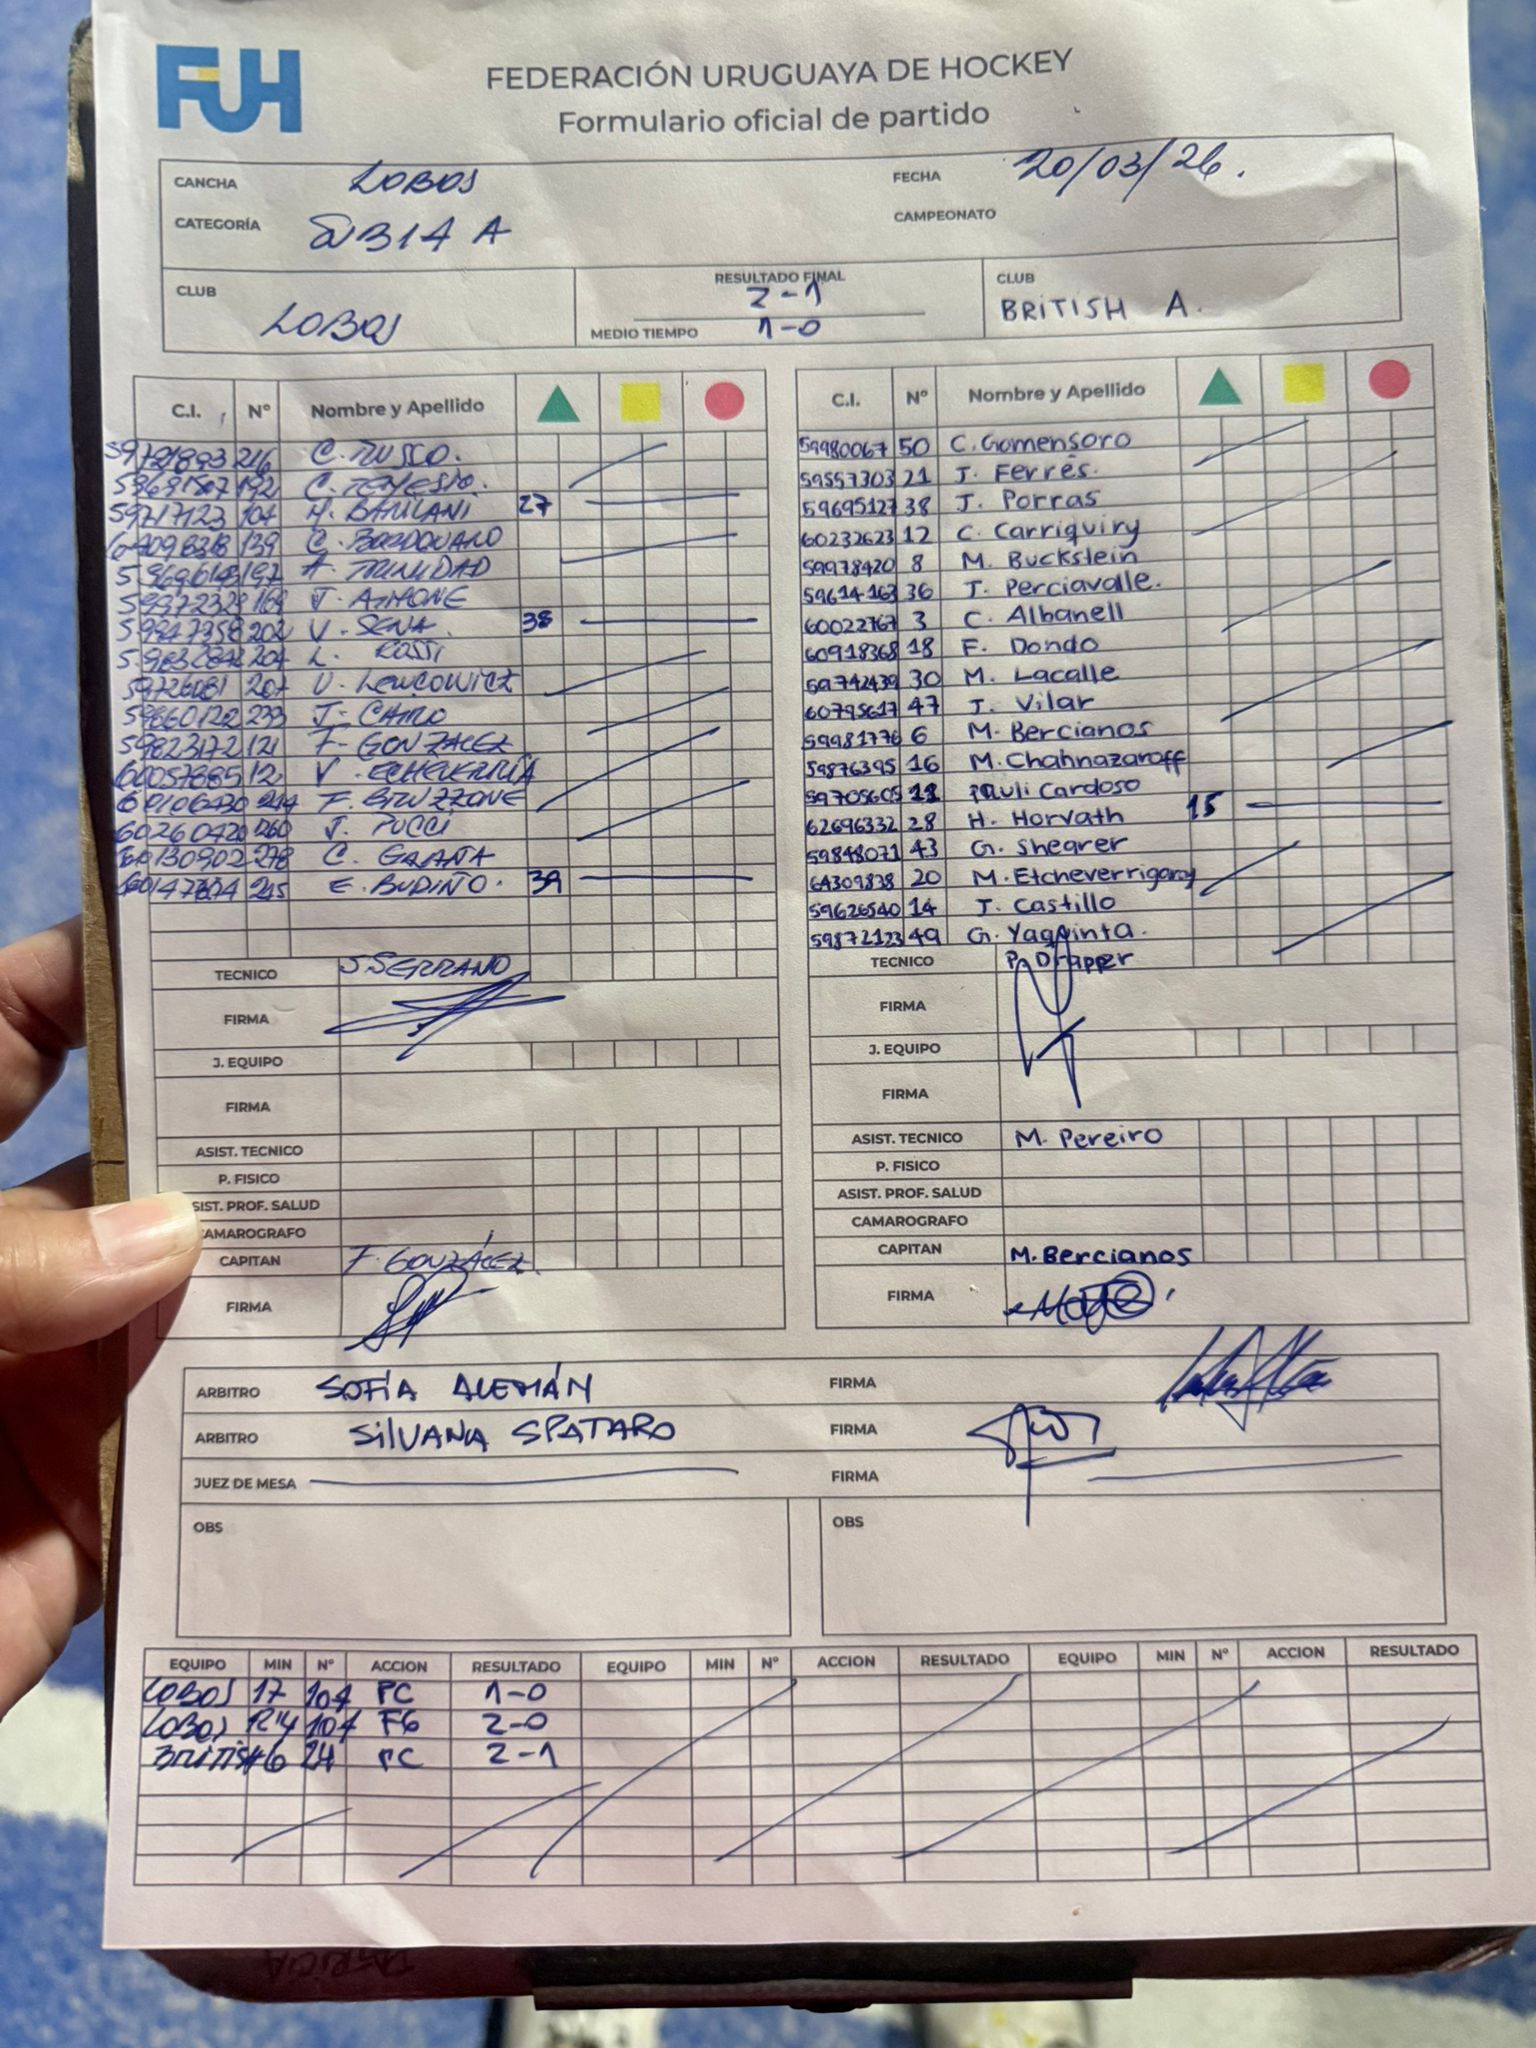 FUH
FEDERACIÓN URUGUAYA DE HOCKEY
Formulario oficial de partido
CANCHA LOBOS FECHA 20/03/26.
CATEGORÍA SUB14 A CAMPEONATO
CLUB LOBOS RESULTADO FINAL 2-1 MEDIO TIEMPO 1-0 CLUB BRITISH A.
C.I. N° Nombre y Apellido
216 C. RUSCO.
192 C.
59717123 104 M. 27
139 C.
197 A. TRINIDAD
J. AIMONE
202 V. SENA. 38
204 L. ROSSI
59726081 207 U.
59860122 233 J. CAIRO
59823172 121 F. GONZALEZ
60057885 12 V. ECHEVERRÍA
F. BRUZZONE
60260420 260 J. PUCCI
278 C. GRAÑA
E. BUDIÑO. 39
TECNICO S. SERRANO
FIRMA
J. EQUIPO
FIRMA
ASIST. TECNICO
P. FISICO
SIST. PROF. SALUD
CAMAROGRAFO
CAPITAN F. GONZÁLEZ
FIRMA
C.I. N° Nombre y Apellido
59980067 50 C. Gomensoro
59557303 21 J. Ferrés.
59695127 38 J. Porras
60232623 12 C. Carriquiry
59978420 8 M. Buckstein
59614163 36 J. Perciavalle.
60022767 3 C. Albanell
60918368 18 F. Dondo
59742439 30 M. Lacalle
60795617 47 J. Vilar
59981776 6 M. Bercianos
59876395 16 M. Chahnazaroff
59705605 Pauli Cardoso
62696332 28 H. Horvath 15
59848071 43 G. Shearer
64309838 20 M. Etcheverrigaray
59626540 14 J. Castillo
59872123 49 G. Yaquinta.
TECNICO P. Drapper
FIRMA
J. EQUIPO
FIRMA
ASIST. TECNICO M. Pereiro
P. FISICO
ASIST. PROF. SALUD
CAMAROGRAFO
CAPITAN M. Bercianos
FIRMA
ARBITRO SOFÍA ALEMÁN FIRMA
ARBITRO SILVANA SPATARO FIRMA
JUEZ DE MESA FIRMA
OBS OBS
EQUIPO MIN N° ACCION RESULTADO EQUIPO MIN N° ACCION RESULTADO EQUIPO MIN N° ACCION RESULTADO
LOBOS 17 104 PC 1-0
LOBOS 104 FG 2-0
BRITISH PC 2-1